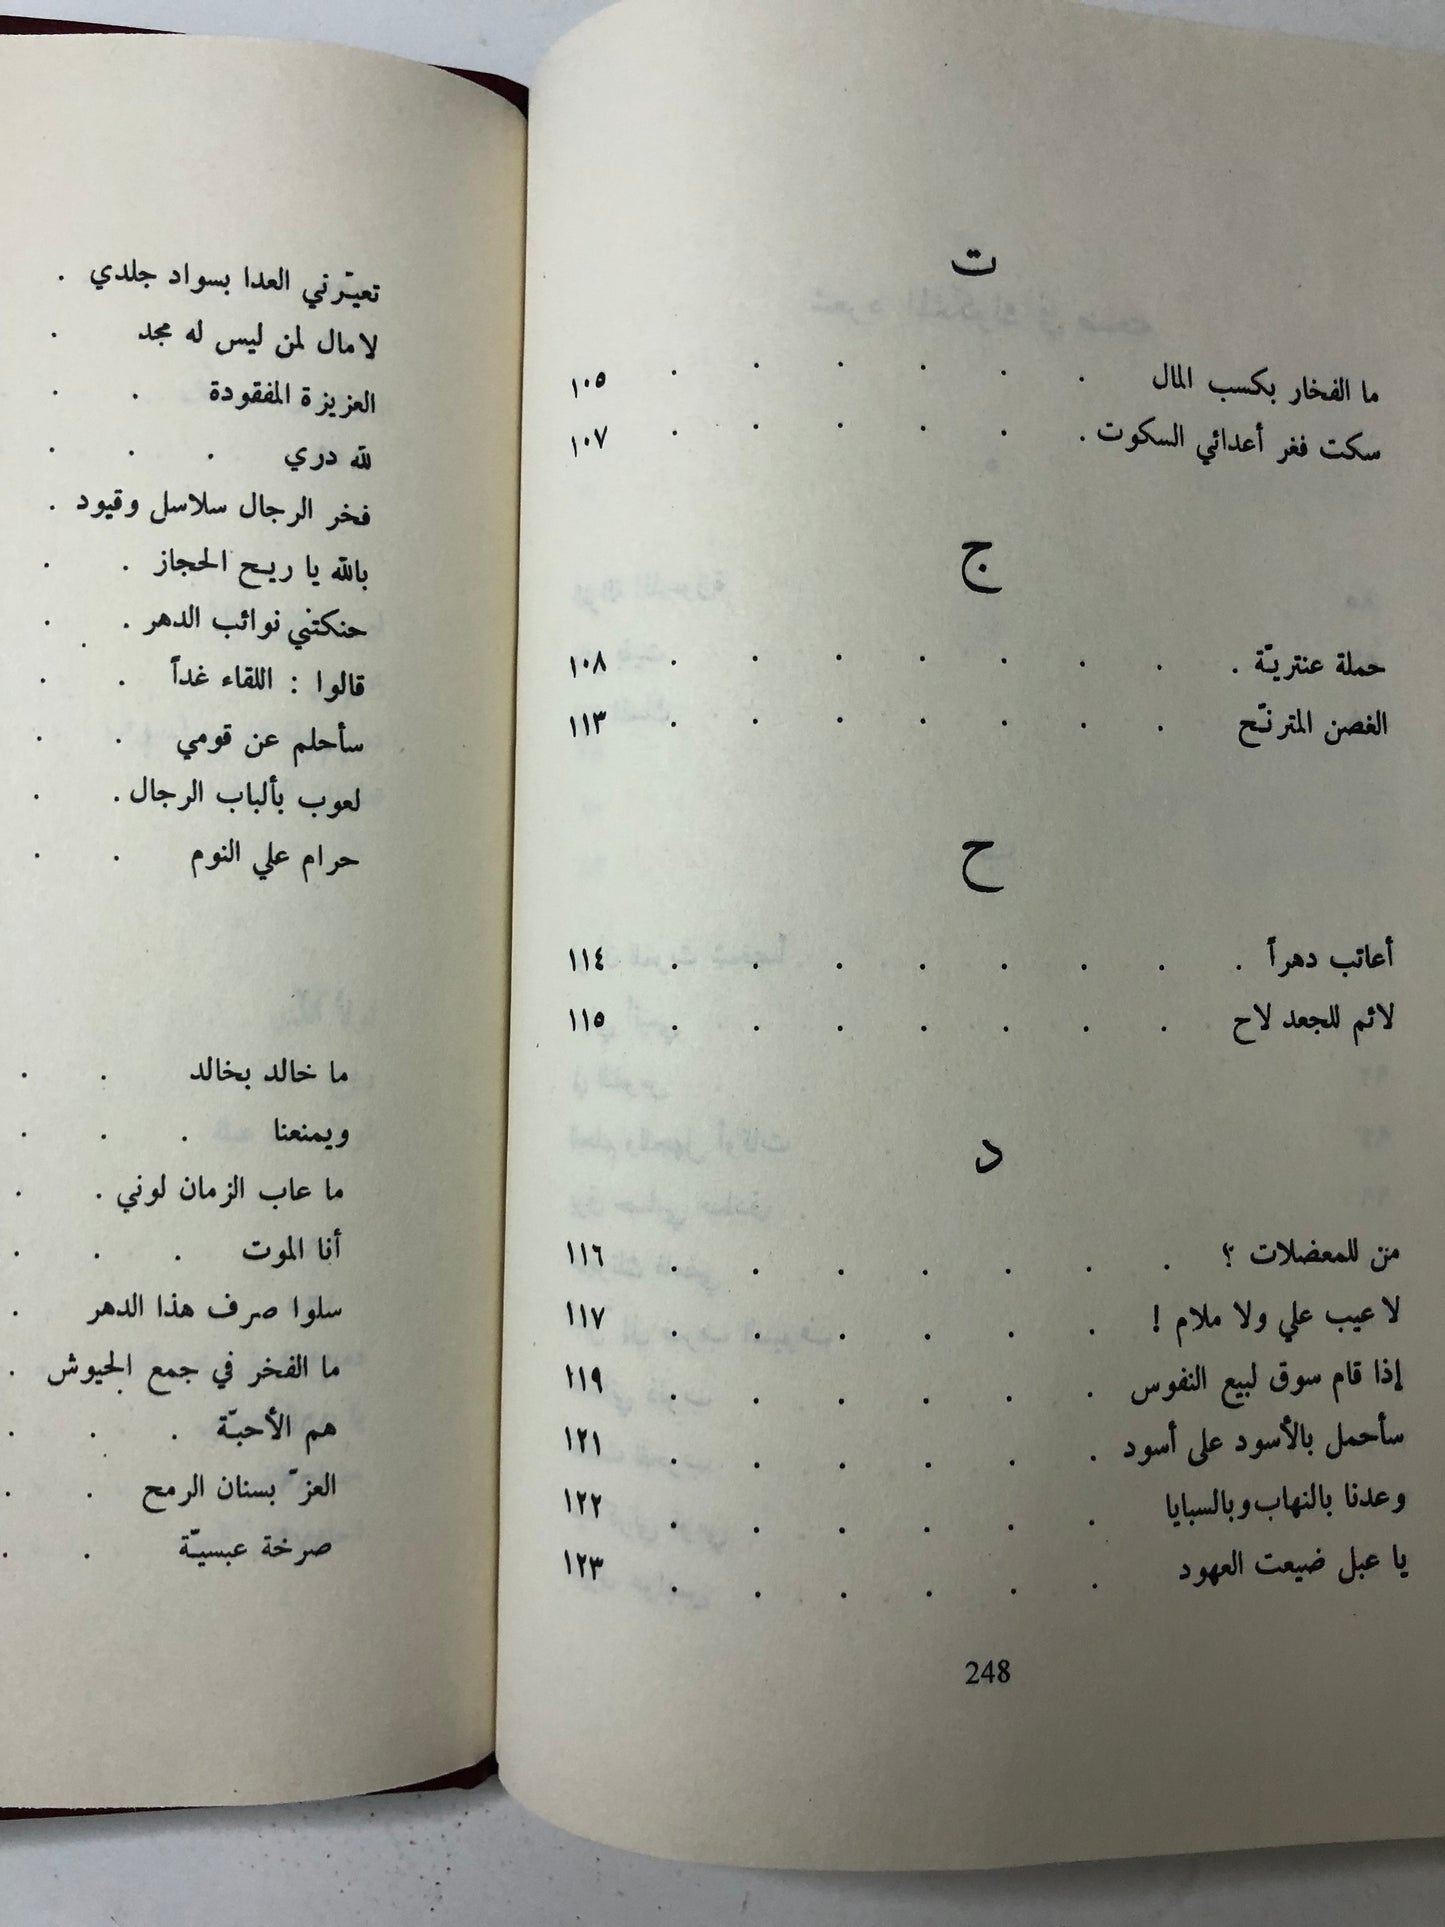 ت
ما الفخار بكسب المال . . . . . . ١٠٥
سكت فغر أعدائي السكوت . . . . . . ١٠٧
ج
حملة عنتريّة . . . . . . . . ١٠٨
الغصن المترنّح . . . . . . . ١١٣
ح
أعاتب دهراً . . . . . . . . ١١٤
لائم للجعد لاح . . . . . . . ١١٥
د
من للمعضلات ؟ . . . . . . . ١١٦
لا عيب علي ولا ملام ! . . . . . . ١١٧
إذا قام سوق لبيع النفوس . . . . . . ١١٩
سأحمل بالأسود على أسود . . . . . . ١٢١
وعدنا بالنهاب وبالسبايا . . . . . . ١٢٢
يا عبل ضيعت العهود . . . . . . ١٢٣
248
تعيّرني العدا بسواد جلدي .
لا مال لمن ليس له مجد .
العزيزة المفقودة . .
لله دري . . .
فخر الرجال سلاسل وقيود .
بالله يا ريح الحجاز . .
حنكتني نوائب الدهر . .
قالوا : اللقاء غداً . .
سأحلم عن قومي . .
لعوب بألباب الرجال . .
حرام علي النوم . .
ما خالد بخالد . .
ويمنعنا . . .
ما عاب الزمان لوني . .
أنا الموت . . .
سلوا صرف هذا الدهر .
ما الفخر في جمع الجيوش .
هم الأحبّة . . .
العزّ بسنان الرمح . .
صرخة عبسيّة . .